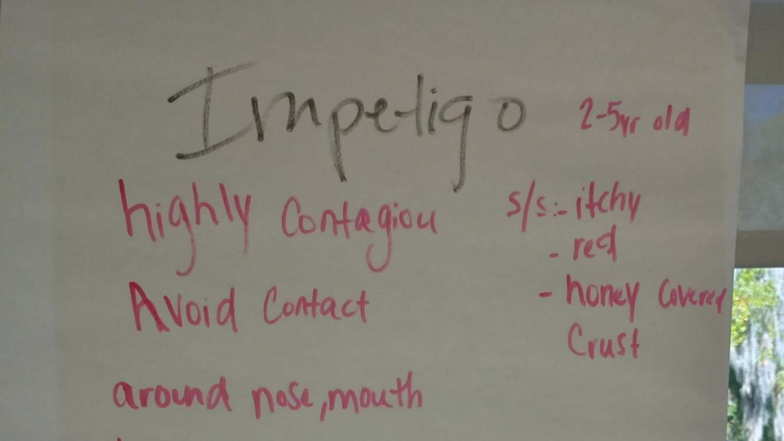 Impetigo
2-5yr old
highly Contagiou
Avoid Contact
around nose, mouth
s/s:- itchy
- red
- honey Covered
Crust